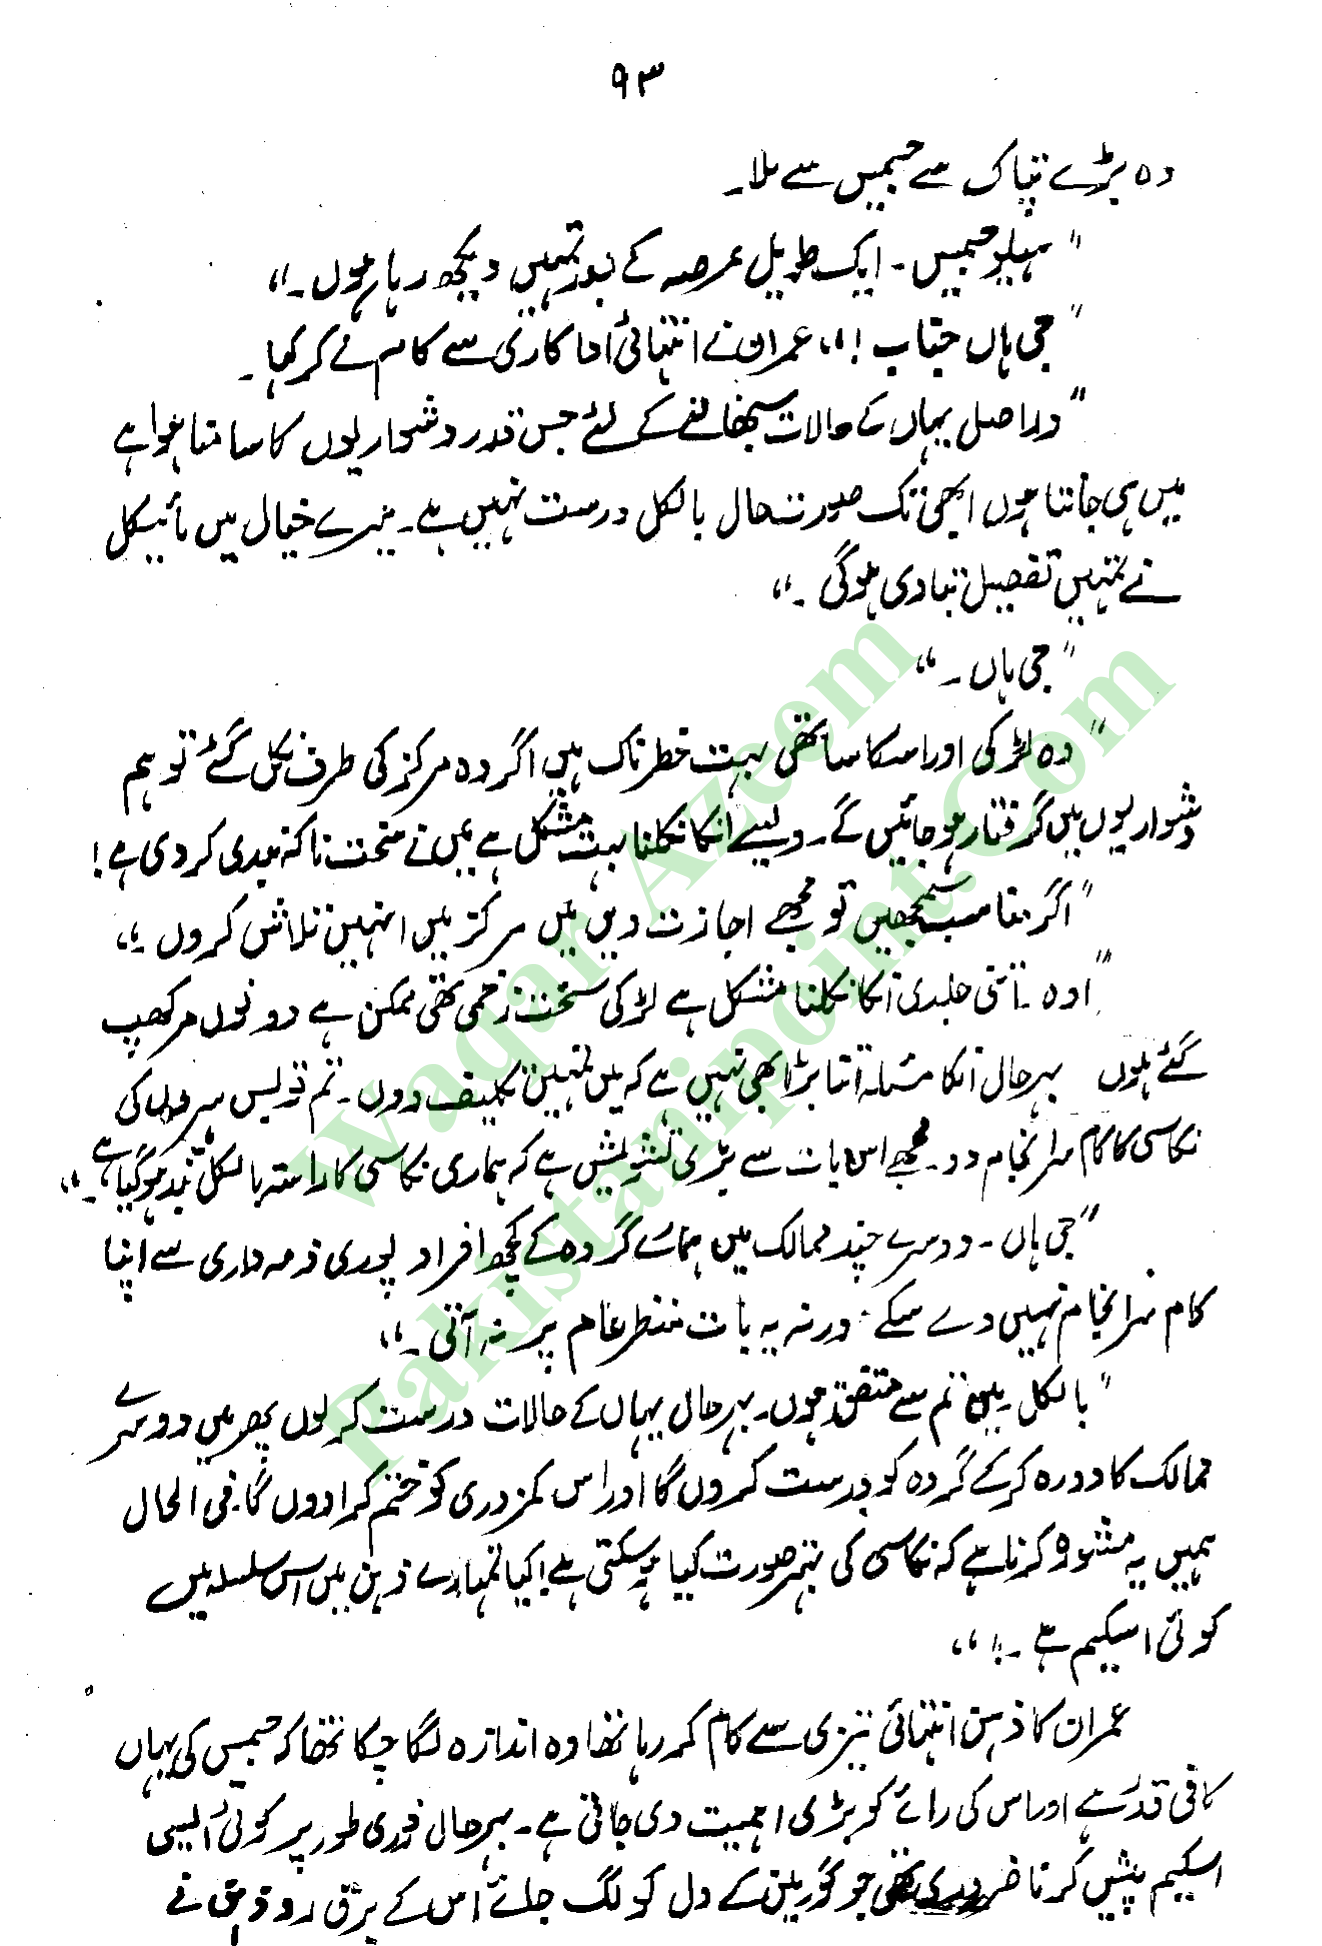 ۹۳
وہ بڑے تپاک سے جیمس سے ملا۔
"ہیلو جیمس۔ ایک طویل عرصہ کے بعد تمہیں دیکھ رہا ہوں۔"
"جی ہاں جناب!" عمران نے انتہائی اداکاری سے کام لے کر کہا۔
"دراصل یہاں کے حالات سنبھالنے کے لئے جس قدر دشواریوں کا سامنا ہوا ہے
میں ہی جانتا ہوں ابھی تک صورت حال بالکل درست نہیں ہے۔ میرے خیال میں مائیکل
نے تمہیں تفصیل بتا دی ہوگی۔"
"جی ہاں۔"
"وہ لڑکی اور اسکا ساتھی بہت خطرناک ہیں اگر وہ مرکز کی طرف نکل گئے تو ہم
دشواریوں میں گرفتار ہو جائیں گے۔ ویسے انکا نکلنا بہت مشکل ہے میں نے سخت ناکہ بندی کر دی ہے!
"اگر مناسب سمجھیں تو مجھے اجازت دیں میں مرکز میں انہیں تلاش کروں۔"
"اوہ۔ اتنی جلدی انکا نکلنا مشکل ہے لڑکی سخت زخمی تھی ممکن ہے دونوں مر کھپ
گئے ہوں بہرحال انکا مسئلہ اتنا بڑا بھی نہیں ہے کہ میں تمہیں تکلیف دوں۔ تم تو بس ہیروں کی
نکاسی کا کام سرانجام دو۔ مجھے اس بات سے بڑی تشویش ہے کہ ہماری نکاسی کا راستہ بالکل بند ہوگیا ہے۔"
"جی ہاں۔ دوسرے چند ممالک میں ہمارے گروہ کے کچھ افراد پوری ذمہ داری سے اپنا
کام سرانجام نہیں دے سکے۔ ورنہ یہ بات منظر عام پر نہ آتی۔"
"بالکل میں تم سے متفق ہوں۔ بہرحال یہاں کے حالات درست کر لوں پھر میں دوسرے
ممالک کا دورہ کر کے گروہ کو درست کروں گا اور اس کمزوری کو ختم کرا دوں گا۔ فی الحال
ہمیں یہ مشورہ کرنا ہے کہ نکاسی کی بہتر صورت کیا ہو سکتی ہے! کیا تمہارے ذہن میں اس سلسلہ میں
کوئی اسکیم ہے۔!"
عمران کا ذہن انتہائی تیزی سے کام کر رہا تھا وہ اندازہ لگا چکا تھا کہ جیمس کی یہاں
کافی قدر ہے اور اس کی رائے کو بڑی اہمیت دی جاتی ہے۔ بہرحال فوری طور پر کوئی ایسی
اسکیم پیش کرنا ضروری تھی جو گوریلن کے دل کو لگ جائے اس کے برق رو ذہن نے
Waqar Azeem
Pakistanipoint.Com